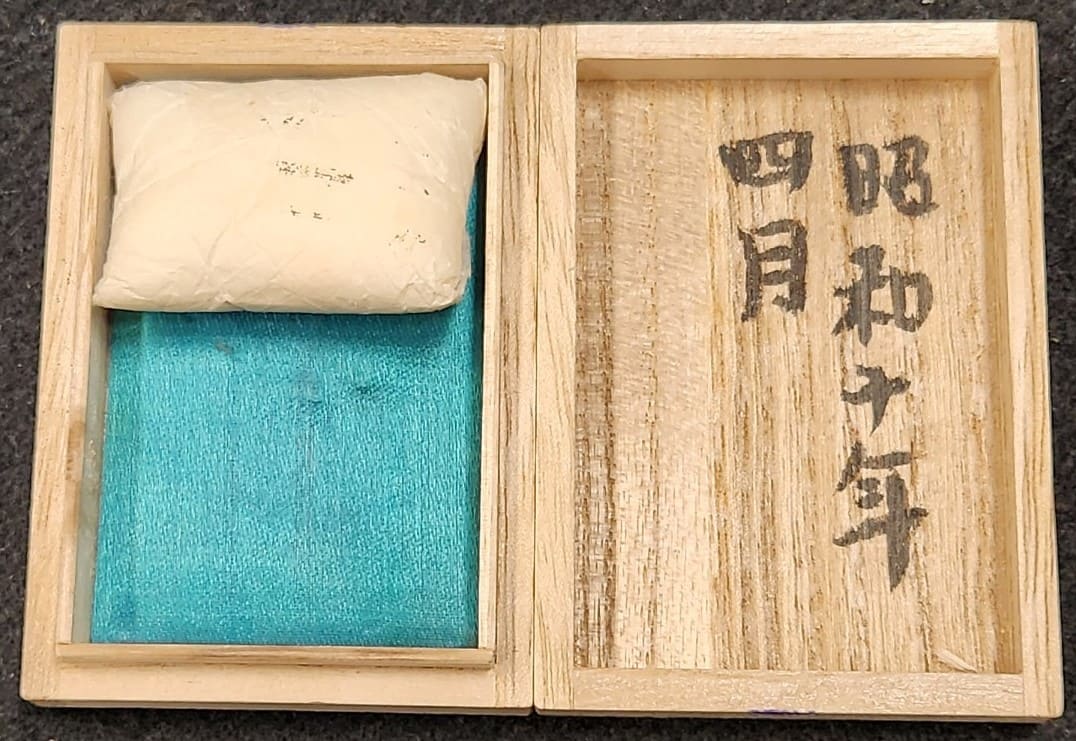 昭和十年
四月